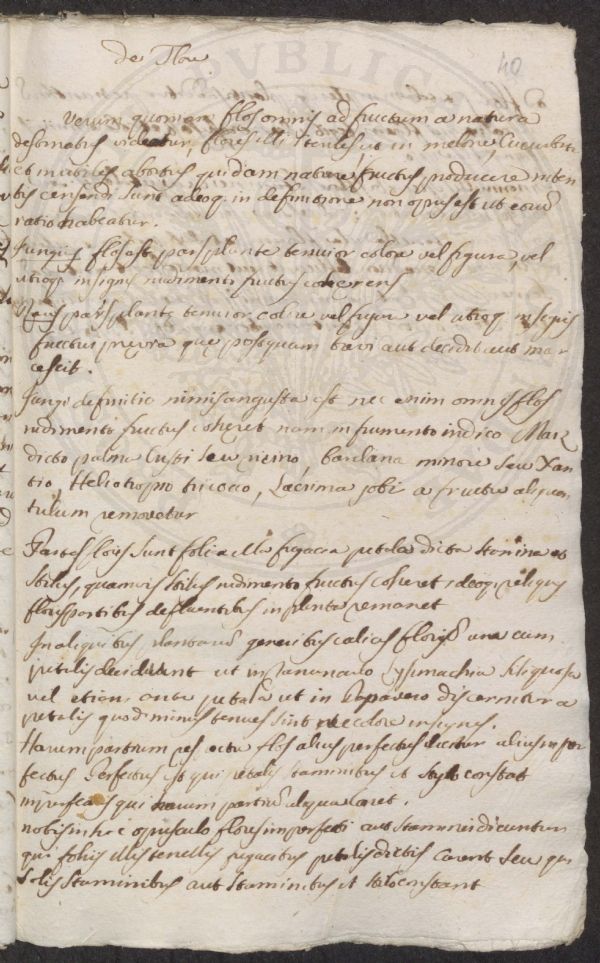 de Flore
40
Verum quoniam flos omnis ad fructum a natura
destinatus videatur, flores illi steriles ut in melone, Cucurbita
et similibus abortus quidam naturae fructus producere inten
tis censendi sunt adeoq. in definitione non opus est ut eoru
ratio habeatur.
Jungius flos est pars plante tenuior colore vel figura, vel
utroq. insignis rudimento fructus coherens
Raius pars plantę tenuior colore vel figura vel utroq. insignis
fructus prævia quę postquam brevi aut decidit aut mar
cescit.
Jungi definitio nimis angusta est nec enim omnis flos
rudimento fructus coheret nam in frumento indico Maiz
dicto palma Cristi seu ricino, bardana minore seu Xan
tio, Heliotropio tricoco, Lacrima jobi a fructu aliquan
tulum removetur
Partes floris sunt folia illa fugacia petala dicta stamina et
stilus, quamvis stilus rudimento fructus coheret, adeoq. reliquis
floris partibus defluentibus in planta remanet
In aliquibus plantaru generibus calices floris una cum
petalis decidunt ut in ranunculo Lysimachia siliquosa
vel etiam ante petala ut in Papavere discernitur a
petalis quod minus tenues sint nec colore insignes.
Harum partium respectu flos alius perfectus dicitur alius imper
fectus Perfectus est qui petalis staminibus et stylo constat
imperfectus qui harum partiu aliqua caret.
nobis in hoc opusculo flores imperfecti aut staminei dicuntur
qui foliis illis tenellis fugacibus petalis dictis carent seu qui
solis staminibus aut staminibus et stilo constant